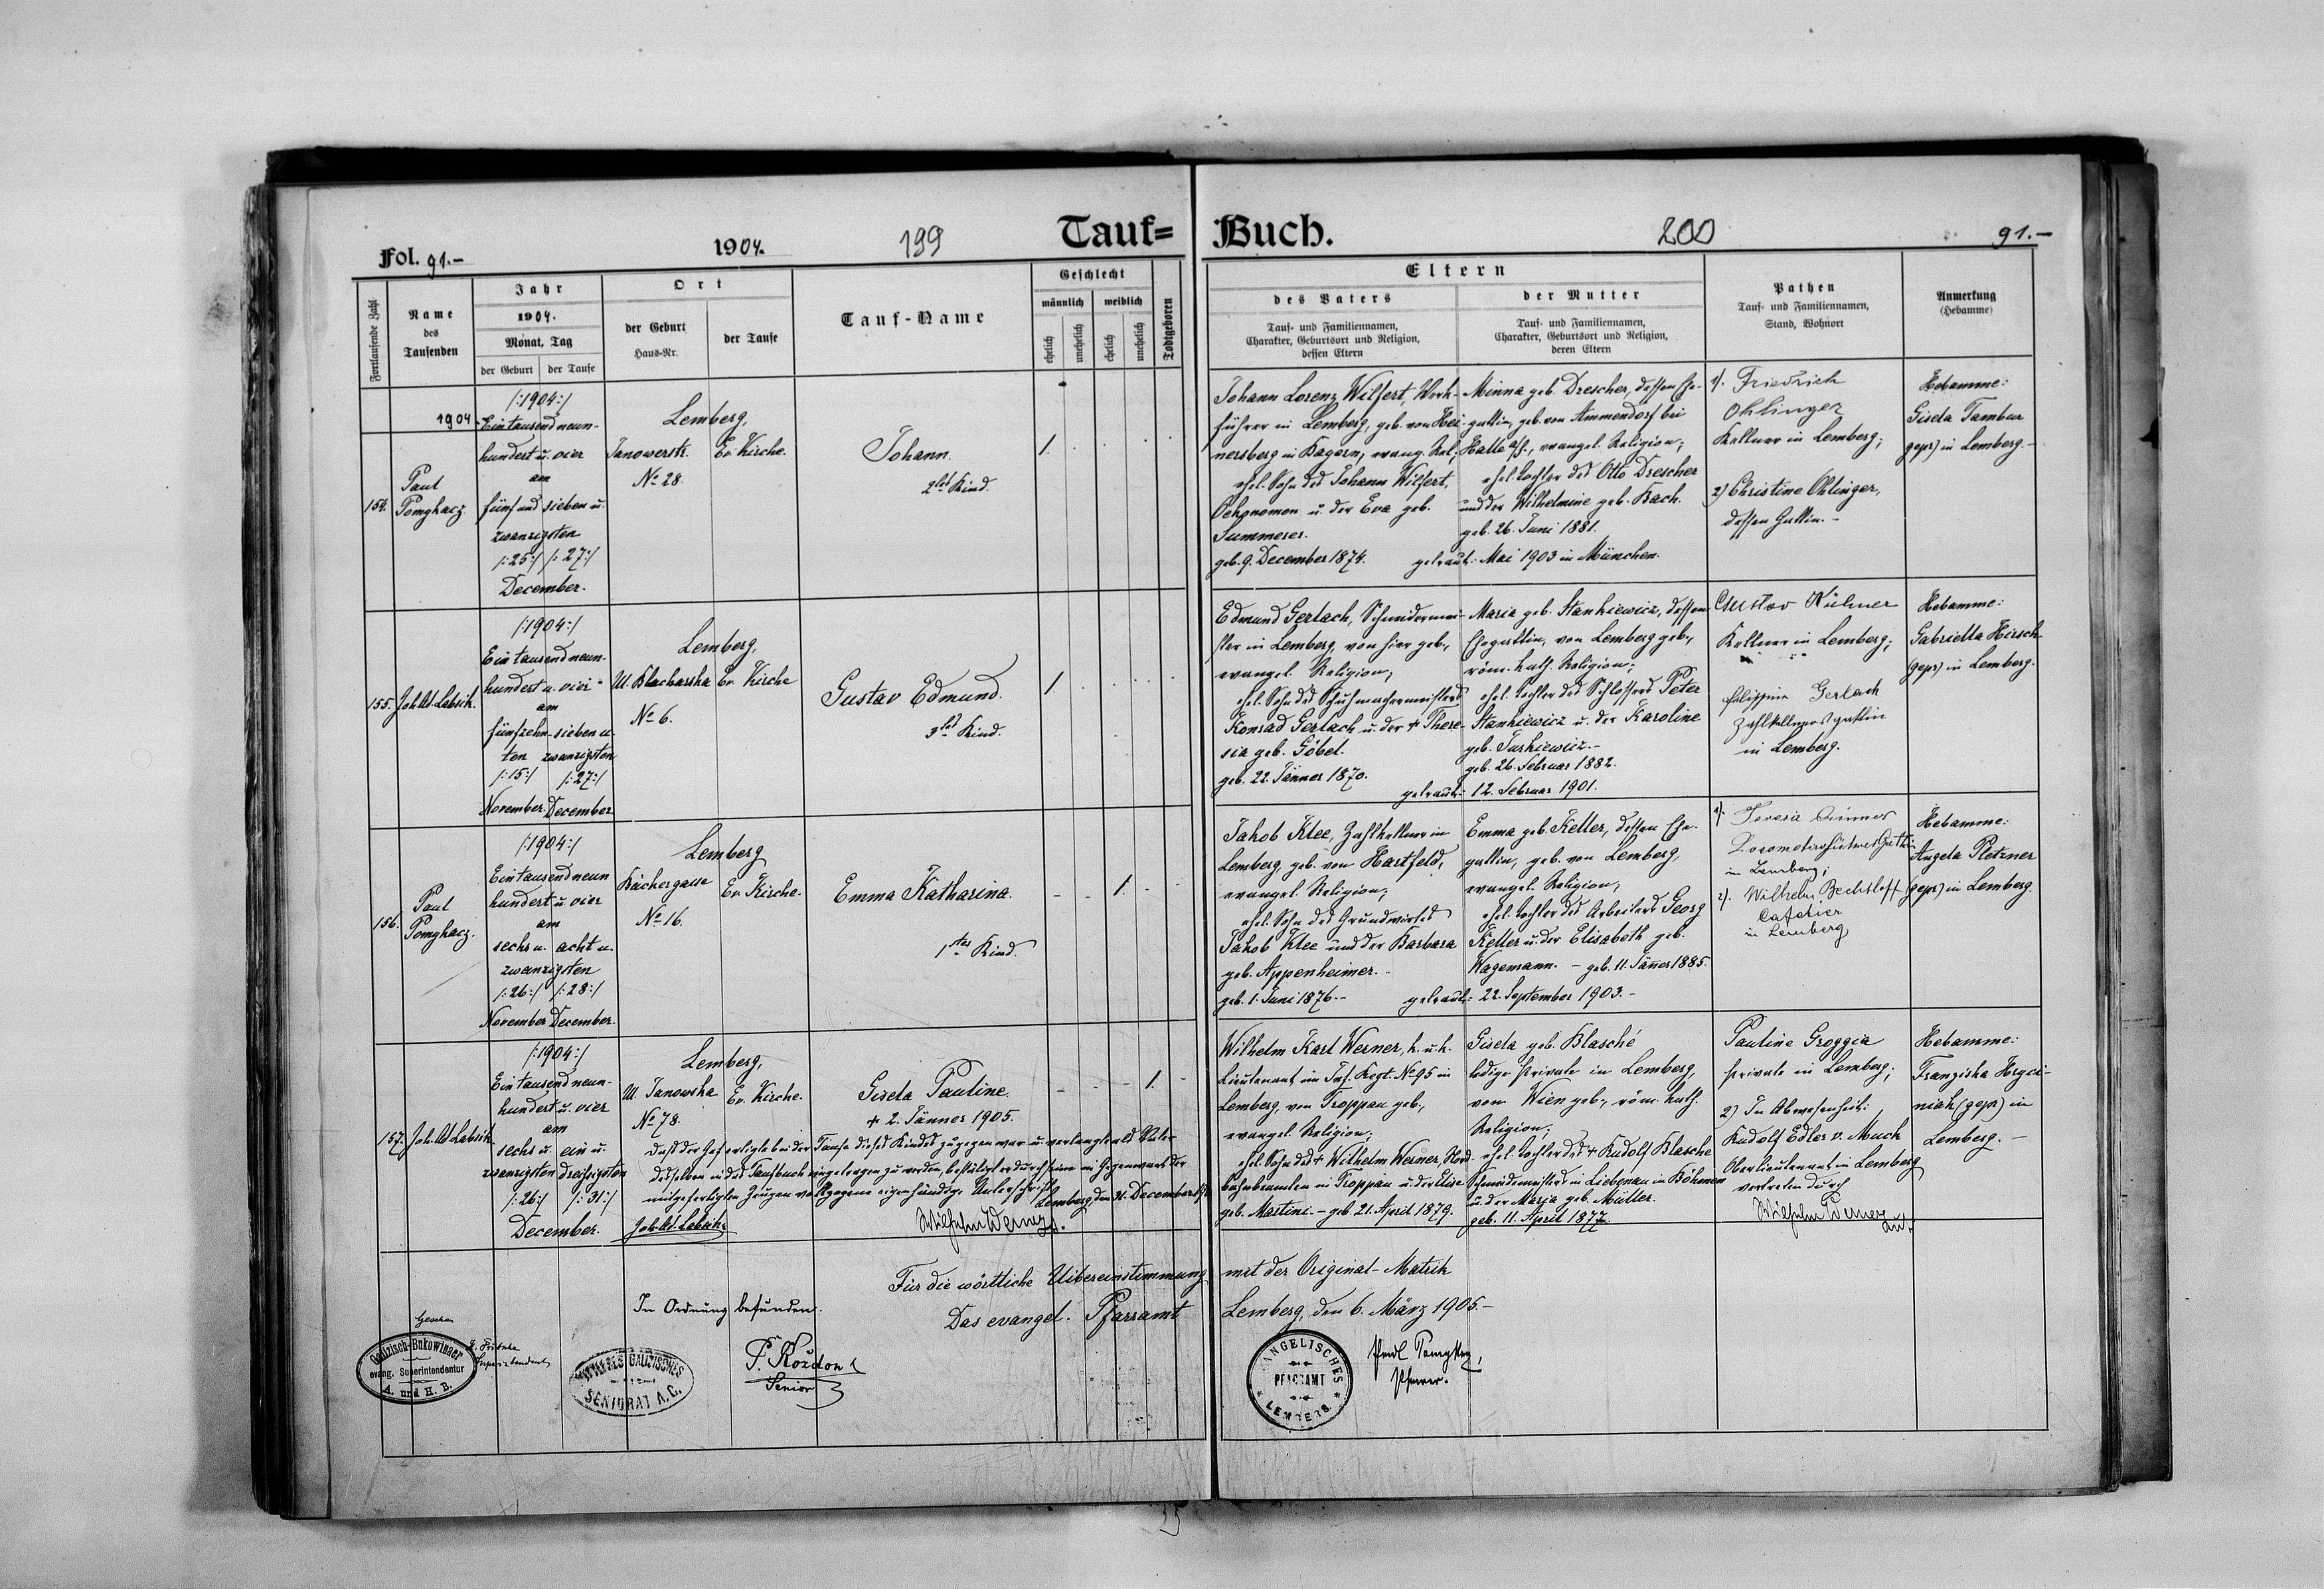 Fol. 91.-
1904.
199
Tauf=
Buch.
200
91.-
Fortlaufende Zahl
Name
des
Taufenden
Jahr
1904.
Monat, Tag
der Geburt
der Taufe
Ort
der Geburt
Haus-Nr.
der Taufe
Tauf-Name
Geschlecht
männlich
weiblich
ehelich
unehelich
ehelich
unehelich
Todtgeboren
Eltern
des Vaters
Tauf- und Familiennamen,
Charakter, Geburtsort und Religion,
dessen Eltern
der Mutter
Tauf- und Familiennamen,
Charakter, Geburtsort und Religion,
deren Eltern
Pathen
Tauf- und Familiennamen,
Stand, Wohnort
Anmerkung
(Hebamme)
1904.
154.
Paul
Pomykacz.
/:1904:/
Ein tausend neun-
hundert u. vier
am
fünf und sieben u.
zwanzigsten
/:25:/ /:27:/
December.
Lemberg,
Janowerstr.
No 28.
Ev. Kirche.
Johann.
2tes Kind.
1.
Johann Lorenz Wilfert, Werk-
führer in Lemberg, geb. von Hei-
nersberg in Bayern, evang. Rel.;
ehel. Sohn des Johann Wilfert,
Oekonomen u. der Eva geb.
Summerer.
geb. 9. December 1874.
Minna geb. Drescher, dessen Ehe-
gattin, geb. von Ammendorf bei
Halle a/S., evangel. Religion;
ehel. Tochter des Otto Drescher
und der Wilhelmine geb. Bach.
geb. 26. Juni 1881.
getraut: Mai 1903 in München.
1). Friedrich
Ohlinger
Kellner in Lemberg;
2) Christine Ohlinger,
dessen Gattin.-
Hebamme:
Gisela Tambur
(gepr) in Lemberg.-
155.
Joh. Ad. Labsik.
/:1904:/
Ein tausend neun-
hundert u. vier
am
fünfzehn- sieben u.
ten zwanzigsten
/:15:/ /:27:/
November. December
Lemberg,
Ul. Blacharska
No 6.
Ev. Kirche
Gustav Edmund.
3tes Kind.
1.
Edmund Gerlach, Schneidermei-
ster in Lemberg, von hier geb.,
evangel. Religion;
ehel. Sohn des Schuhmachermeisters
Konrad Gerlach u. der + There-
sia geb. Göbel.
geb. 22. Jänner 1870.
Maria geb. Stankiewicz, dessen
Ehegattin, von Lemberg geb.,
röm. kath. Religion;
ehel. Tochter des Schlossers Peter
Stankiewicz u. der Karoline
geb. Turkiewicz.-
geb. 26. Februar 1882.
getraut: 12. Februar 1901.
Gustav Kühner
Kellner in Lemberg;
Philippine Gerlach
Zahlkellnersgattin
in Lemberg.
Hebamme:
Gabriella Hirsch
(gepr) in Lemberg.
156.
Paul
Pomykacz.
/:1904:/
Ein tausend neun
hundert u. vier
am
sechs u. acht u.
zwanzigsten
/:26:/ /:28:/
November December.
Lemberg
Bäckergasse
No 16.
Ev. Kirche.
Emma Katharina.
1tes Kind.
1.
Jakob Klee, Zahlkellner in
Lemberg, geb. von Hartfeld,
evangel. Religion;
ehel. Sohn des Grundwirtes
Jakob Klee und der Barbara
geb. Appenheimer.-
geb. 1. Juni 1876.-
Emma geb. Keller, dessen Ehe-
gattin, geb. von Lemberg,
evangel. Religion;
ehel. Tochter des Arbeiters Georg
Keller u. der Elisabeth geb.
Wagemann. - geb. 11. Jäner 1885.
getraut: 22. September 1903.-
1). Teresie
in Lemberg;
2). Wilhelm Bechtloff
Cafetier
in Lemberg
Hebamme:
Angela Pletzner
(gepr) in Lemberg.
157.
Joh. Ad. Labsik
/:1904:/
Ein tausend neun-
hundert u. vier
am
sechs u. ein u.
zwanzigsten dreißigsten
/:26:/ /:31:/
December.
Lemberg,
Ul. Janowska
No 78.
Ev. Kirche.
Gisela Pauline.
+ 2. Jänner 1905.
1.
Daß der Gefertigte bei der Taufe dieses Kindes zugegen war u. verlangte als Vater
desselben in das Taufbuch eingetragen zu werden, bestätigt er durch seine in Gegenwart der
mitgefertigten Zeugen vollzogene eigenhändige Unterschrift.
Lemberg, den 31. December 1904
Joh. Ad. Labsik
Wilhelm Werner
Wilhelm Karl Werner, k. u. k.
Lieutenant im Inf. Regt. No 95 in
Lemberg, von Troppau geb.,
evangel. Religion;
ehel. Sohn des + Wilhelm Werner, Nord-
bahnbeamten in Troppau u. der Elise
geb. Martini.- geb. 21. April 1879.
Gisela geb. Blasché
ledige Private in Lemberg,
von Wien geb., röm. kath.
Religion;
ehel. Tochter des + Rudolf Blasche
Schneidermeisters in Liebenau in Böhmen
u. der Maria geb. Müller.
geb. 11. April 1877.
Pauline Groggia
Private in Lemberg;
2) In Abwesenheit:
Rudolf Edler v. Much
Oberlieutenant in Lemberg
vertreten durch
Wilhelm Werner
Hebamme:
Franziska Hryci-
niak (gepr) in
Lemberg.-
Für die wörtliche Uibereinstimmung mit der Original-Matrik
In Ordnung befunden.
Das evangel. Pfarramt Lemberg, den 6. März 1905.-
Gesehen
Galizisch-Bukowinaer
evang. Superintendentur
A. und H. B.
Superintendent
GALIZISCHES
SENIORAT A.C.
P. Kozdon
Senior
EVANGELISCHES
PFARRAMT
* LEMBERG *
Paul Pomykacz,
Pfarrer.